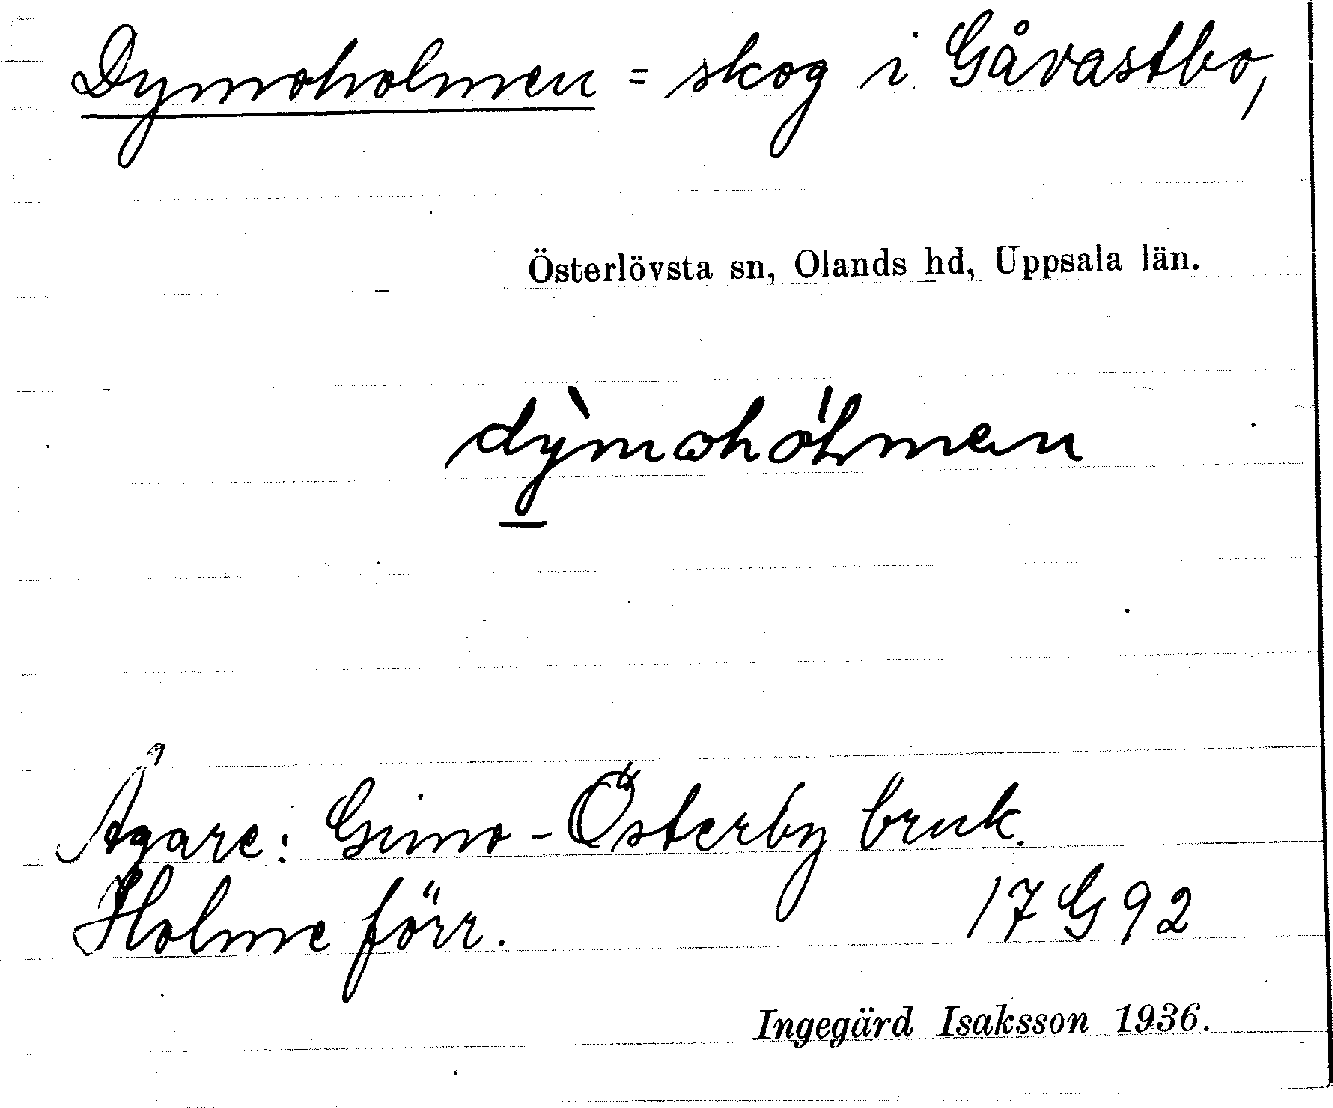 Dymoholmen = skog i Gåvastbo,
Österlövsta sn, Olands hd, Uppsala län.
dỳmɷhólmen
Ägare: Gimo-Österby bruk.
Holme förr. 17 G 92
Ingegärd Isaksson 1936.